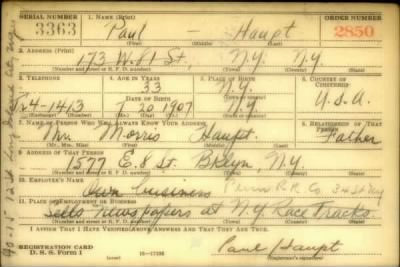 SERIAL NUMBER 1. NAME (Print) ORDER NUMBER
3363 Paul — Haupt 2850
(First) (Middle) (Last)
2. ADDRESS (Print)
173 W. St., N.Y. N.Y.
(Number and street or R. F. D. number) (Town) (County) (State)
3. TELEPHONE 4. AGE IN YEARS 5. PLACE OF BIRTH 6. COUNTRY OF CITIZENSHIP
33 N.Y.
DATE OF BIRTH
4-1413 20 1907 N.Y. U.S.A.
(Exchange) (Number) (Mo.) (Day) (Yr.) (State or country)
7. NAME OF PERSON WHO WILL ALWAYS KNOW YOUR ADDRESS 8. RELATIONSHIP OF THAT PERSON
Mr. Morris Haupt. Father
(Mr., Mrs., Miss) (First) (Middle) (Last)
9. ADDRESS OF THAT PERSON
1577 E. 8 St. Bklyn, N.Y.
(Number and street or R. F. D. number) (Town) (County) (State)
10. EMPLOYER'S NAME
Own business Penn R.R. Co. 34 St NY
11. PLACE OF EMPLOYMENT OR BUSINESS
Sells newspapers at N.Y. Race Tracks.
(Number and street or R. F. D. number) (Town) (County) (State)
I AFFIRM THAT I HAVE VERIFIED ABOVE ANSWERS AND THAT THEY ARE TRUE.
REGISTRATION CARD
D. S. S. Form 1 16—17105 Paul Haupt